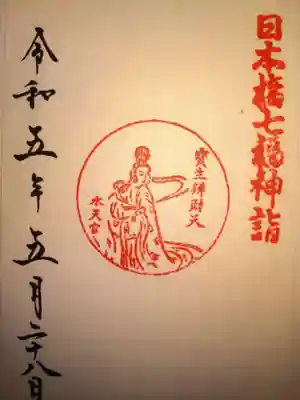 日本橋七福神詣
寳生辨財天
水天宮
令和五年五月二十八日